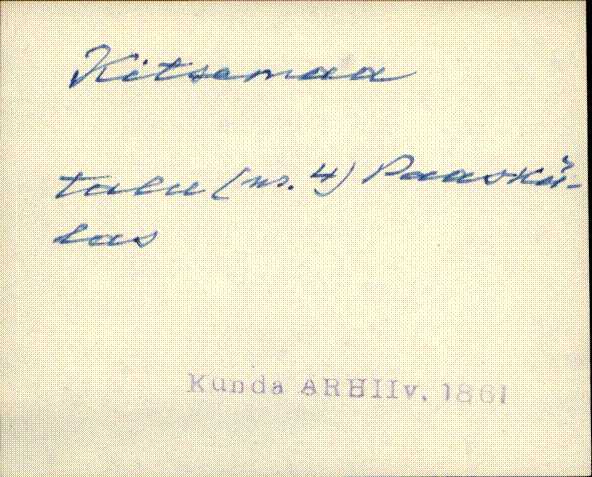 Kitsemaa
talu (nr. 4) Paaskü-
las
Kunda ARHIIv. 1861